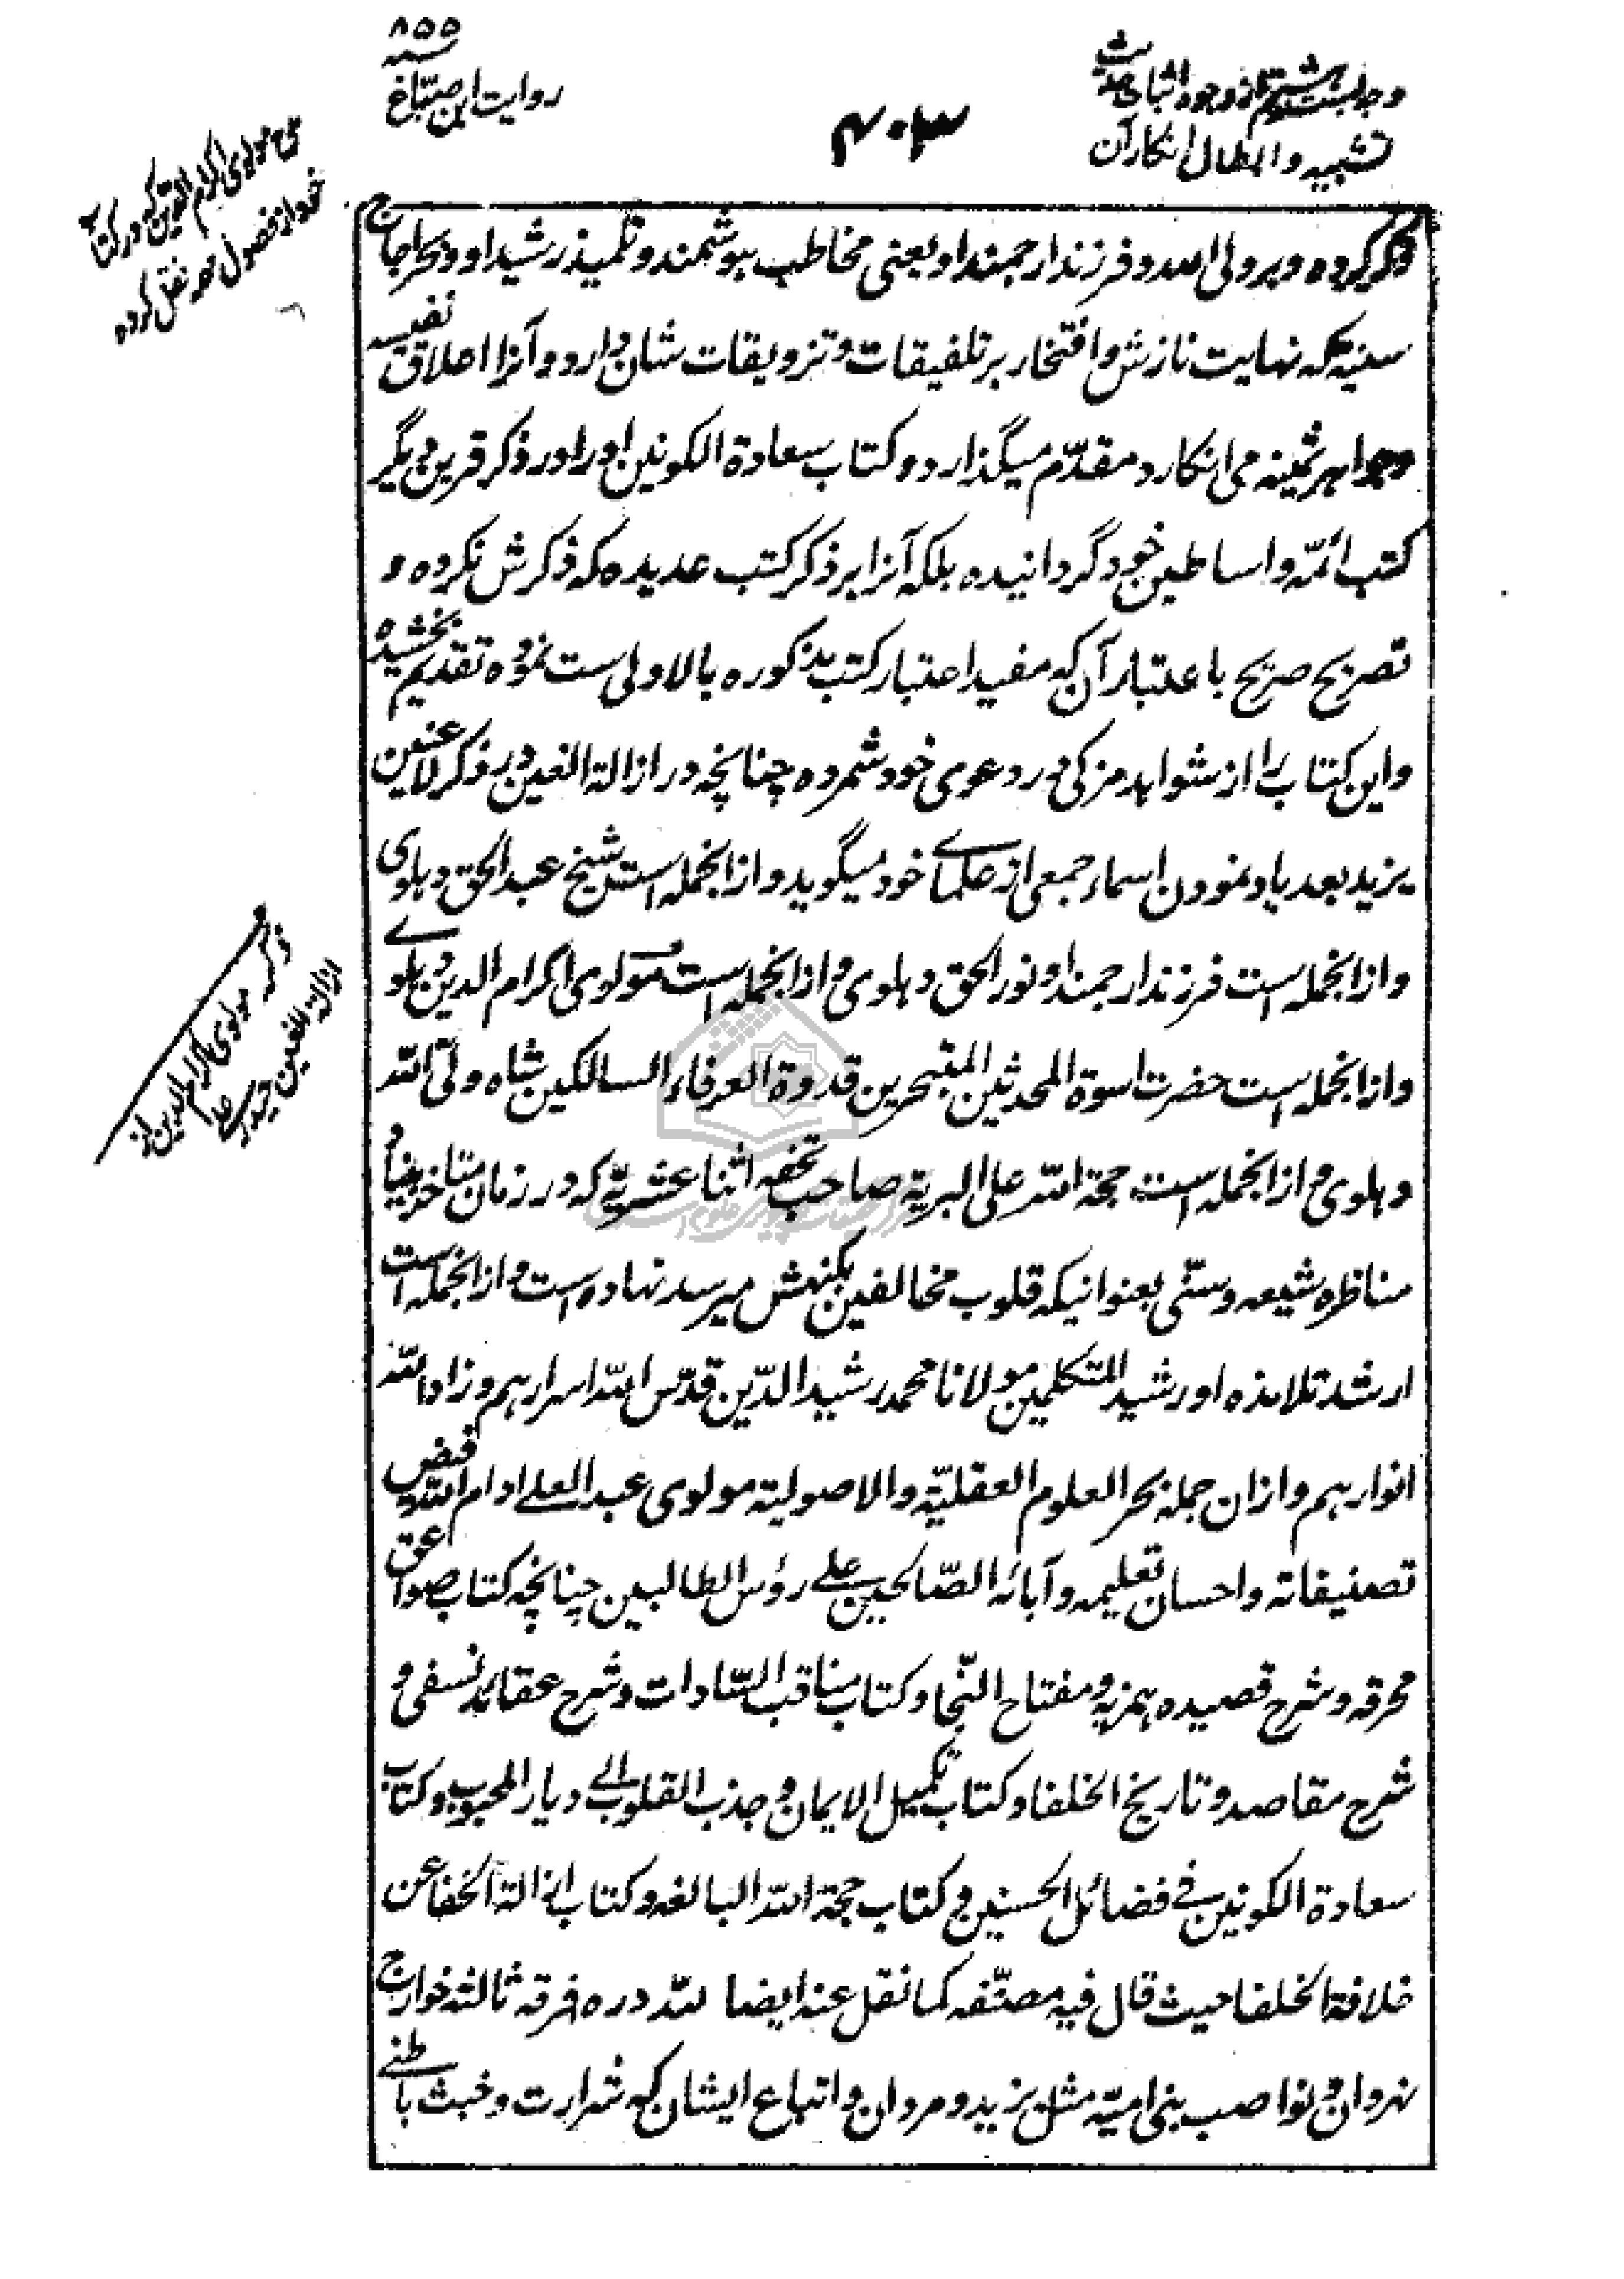 وجه بست و هشتم از وجوه اثبات حدیث
تشبیه و ابطال انکار آن
۴۰۳
۸۵۵
روایت ابن صبّاغ
مولوی اکرام الدین که در کتاب
خود از فصول مهمه نقل کرده
ذکر کرده و بر ولی الله و فرزند ارجمند او یعنی مخاطب هوشمند و تلمیذ رشید او و دیگر اجاج
سنیه که نهایت نازش و افتخار بر تلفیقات و تزویقات شان دارد و آنرا اعلاق نفیسه
و جواهر ثمینه می انکارد مقدّم میگذارد و کتاب سعادة الکونین او را در ذکر قرین دیگر
کتب ائمّه و اساطین خود گردانیده بلکه آنرا بر ذکر کتب عدیده که ذکرش نکرده و
تصریح صریح باعتبار آن که مفید اعتبار کتب مذکوره بالاولی ست نموده تقدیم بخشیده
و این کتاب را از شواهد مزکی در دعوی خود شمرده چنانچه در ازالة الغین در ذکر لاعنین
یزید بعد یاد نمودن اسماء جمعی از علمای خود میگوید و از انجمله است شیخ عبد الحق دهلوی
و از انجمله است فرزند ارجمند او نور الحق دهلوی و از انجمله است مولوی اکرام الدین دهلوی
و از انجمله است حضرت اسوة المحدثین المتبحرین قدوة العرفاء السالکین شاه ولی الله
دهلوی و از انجمله است حجة الله علی البریه صاحب تحفه اثنا عشریّه که در زمان متاخر بنیاد
مناظره شیعه و سنّی بعنوانیکه قلوب مخالفین بکنهش میرسد نهاده است و از انجمله است
ارشد تلامذه او رشید المتکلمین مولانا محمد رشید الدّین قدّس الله اسرارهم و زاد الله
انوارهم و ازان جمله بحر العلوم العقلیّة والاصولیة مولوی عبد العلی ادام الله فیض
تصنیفاته و احسان تعلیمه و آبائه الصّالحین علی رؤس الطالبین چنانچه کتاب صواعق
محرقه و شرح قصیده همزیه و مفتاح النّجا و کتاب مناقب السّادات و شرح عقائد نسفی و
شرح مقاصد و تاریخ الخلفا و کتاب تکمیل الایمان و جذب القلوب الی دیار المحبوب و کتاب
سعادة الکونین فی فضائل الحسنین و کتاب حجة الله البالغه و کتاب ازالة الخفا عن
خلافة الخلفا حیث قال فیه مصنّفه کما نقل عنه ایضا لله دره فرقه ثالثه خوارج
نهروان و نواصب بنی امیّه مثل یزید و مروان و اتباع ایشان که شرارت و خبث باطنی
ذکر مولوی اکرام الدین از
ازالة الغین حیدر علی